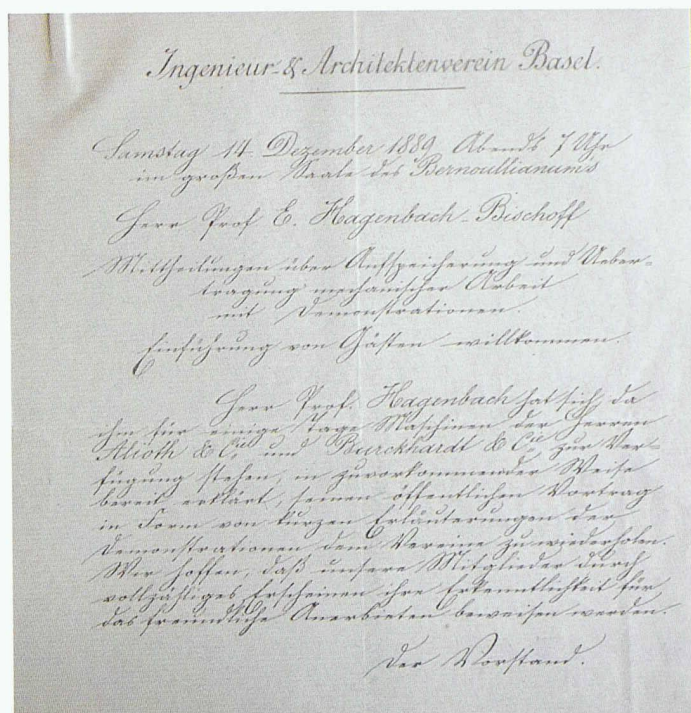 Ingenieur- & Architektenverein Basel.
Samstag 14 Dezember 1889 Abends 7 Uhr
im großen Saale des Bernoullianum's
Herr Prof E. Hagenbach-Bischoff
Mittheilungen über Aufspeicherung und Ueber-
tragung mechanischer Arbeit
mit Demonstrationen.
Einführung von Gästen willkommen.
Herr Prof. Hagenbach hat sich, da
ihm für einige Tage Maschinen der Herren
Alioth & Cie. und Burckhardt & Cie. zur Ver-
fügung stehen, in zuvorkommender Weise
bereit erklärt, seinen öffentlichen Vortrag
in Form von kurzen Erläuterungen der
Demonstrationen dem Vereine zu wiederholen.
Wir hoffen, daß unsere Mitglieder durch
vollzähliges Erscheinen ihre Erkenntlichkeit für
das freundliche Anerbieten beweisen werden.
Der Vorstand.